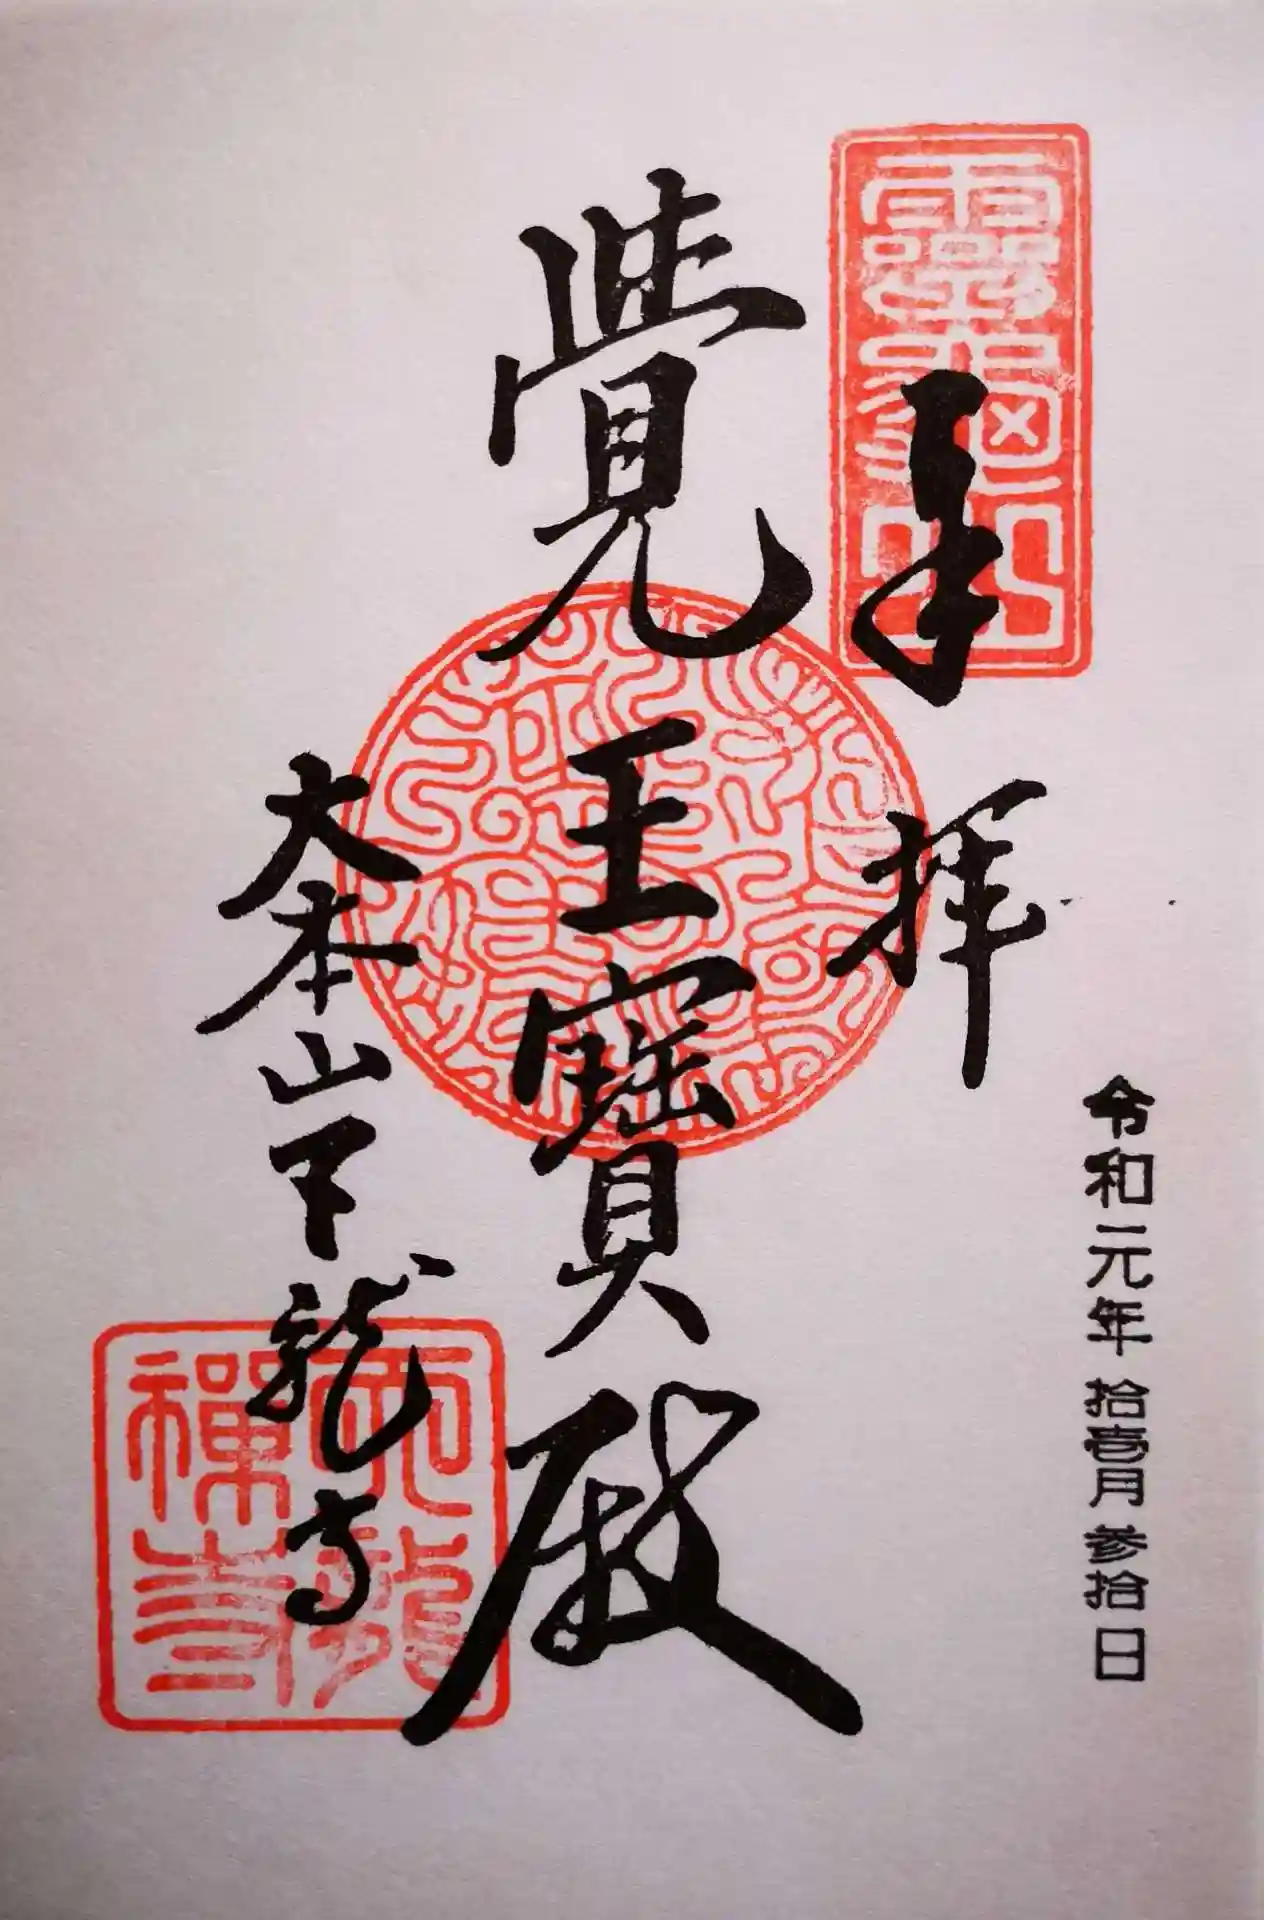 靈龜山
奉拝
令和元年 拾壹月 参拾日
覺王寶殿
大本山天龍寺
天龍
禪寺